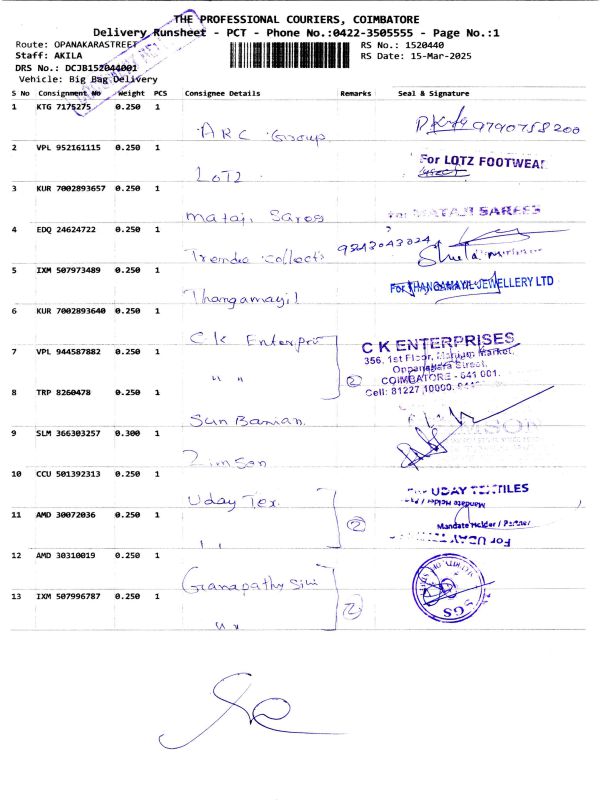 THE PROFESSIONAL COURIERS, COIMBATORE
Delivery Runsheet - PCT - Phone No.:0422-3505555 - Page No.:1
Route: OPANAKARASTREET
RS No.: 1520440
Staff: AKILA
RS Date: 15-Mar-2025
DRS No.: DCJB152044001
Vehicle: Big Bag Delivery
S No Consignment No Weight PCS Consignee Details Remarks Seal & Signature
1 KTG 7175275 0.250 1
ARC Group 9790758200
2 VPL 952161115 0.250 1
LOTZ For LOTZ FOOTWEAR
3 KUR 7002893657 0.250 1
Mataji Sarees For MATAJI SAREES
4 EDQ 24624722 0.250 1
Trende collects 9543043024
5 IXM 507973489 0.250 1
Thangamayil For THANGAMAYIL JEWELLERY LTD
6 KUR 7002893640 0.250 1
C.K Enterpri
C K ENTERPRISES
356, 1st Floor, Market,
7 VPL 944587882 0.250 1
Oppanakara Street,
" " 2 COIMBATORE - 641 001.
Cell: 81227 10000,
8 TRP 8260478 0.250 1
Sun Banian
9 SLM 366303257 0.300 1
Zimson
10 CCU 501392313 0.250 1
Uday Tex For UDAY TEXTILES
11 AMD 30072036 0.250 1
2 Mandate Holder / Partner
For UDAY
12 AMD 30310019 0.250 1
Ganapathy Silk
13 IXM 507996787 0.250 1
2 SGS
" "